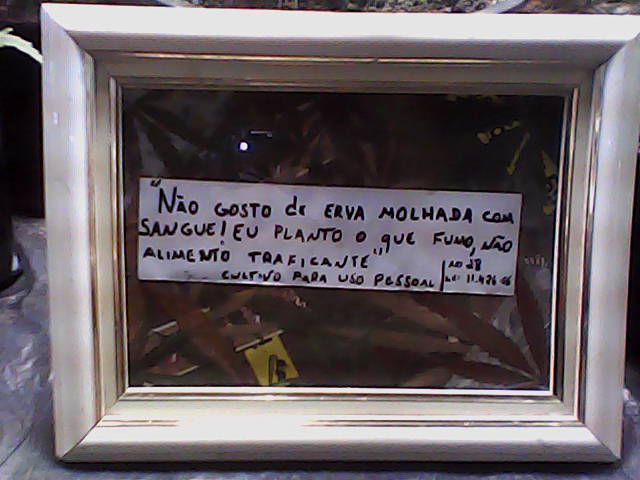 "NÃO GOSTO de ERVA MOLHADA COM
SANGUE! EU PLANTO O QUE FUMO, NÃO
ALIMENTO TRAFICANTE"
CULTIVO PARA USO PESSOAL
28
LEI 11.